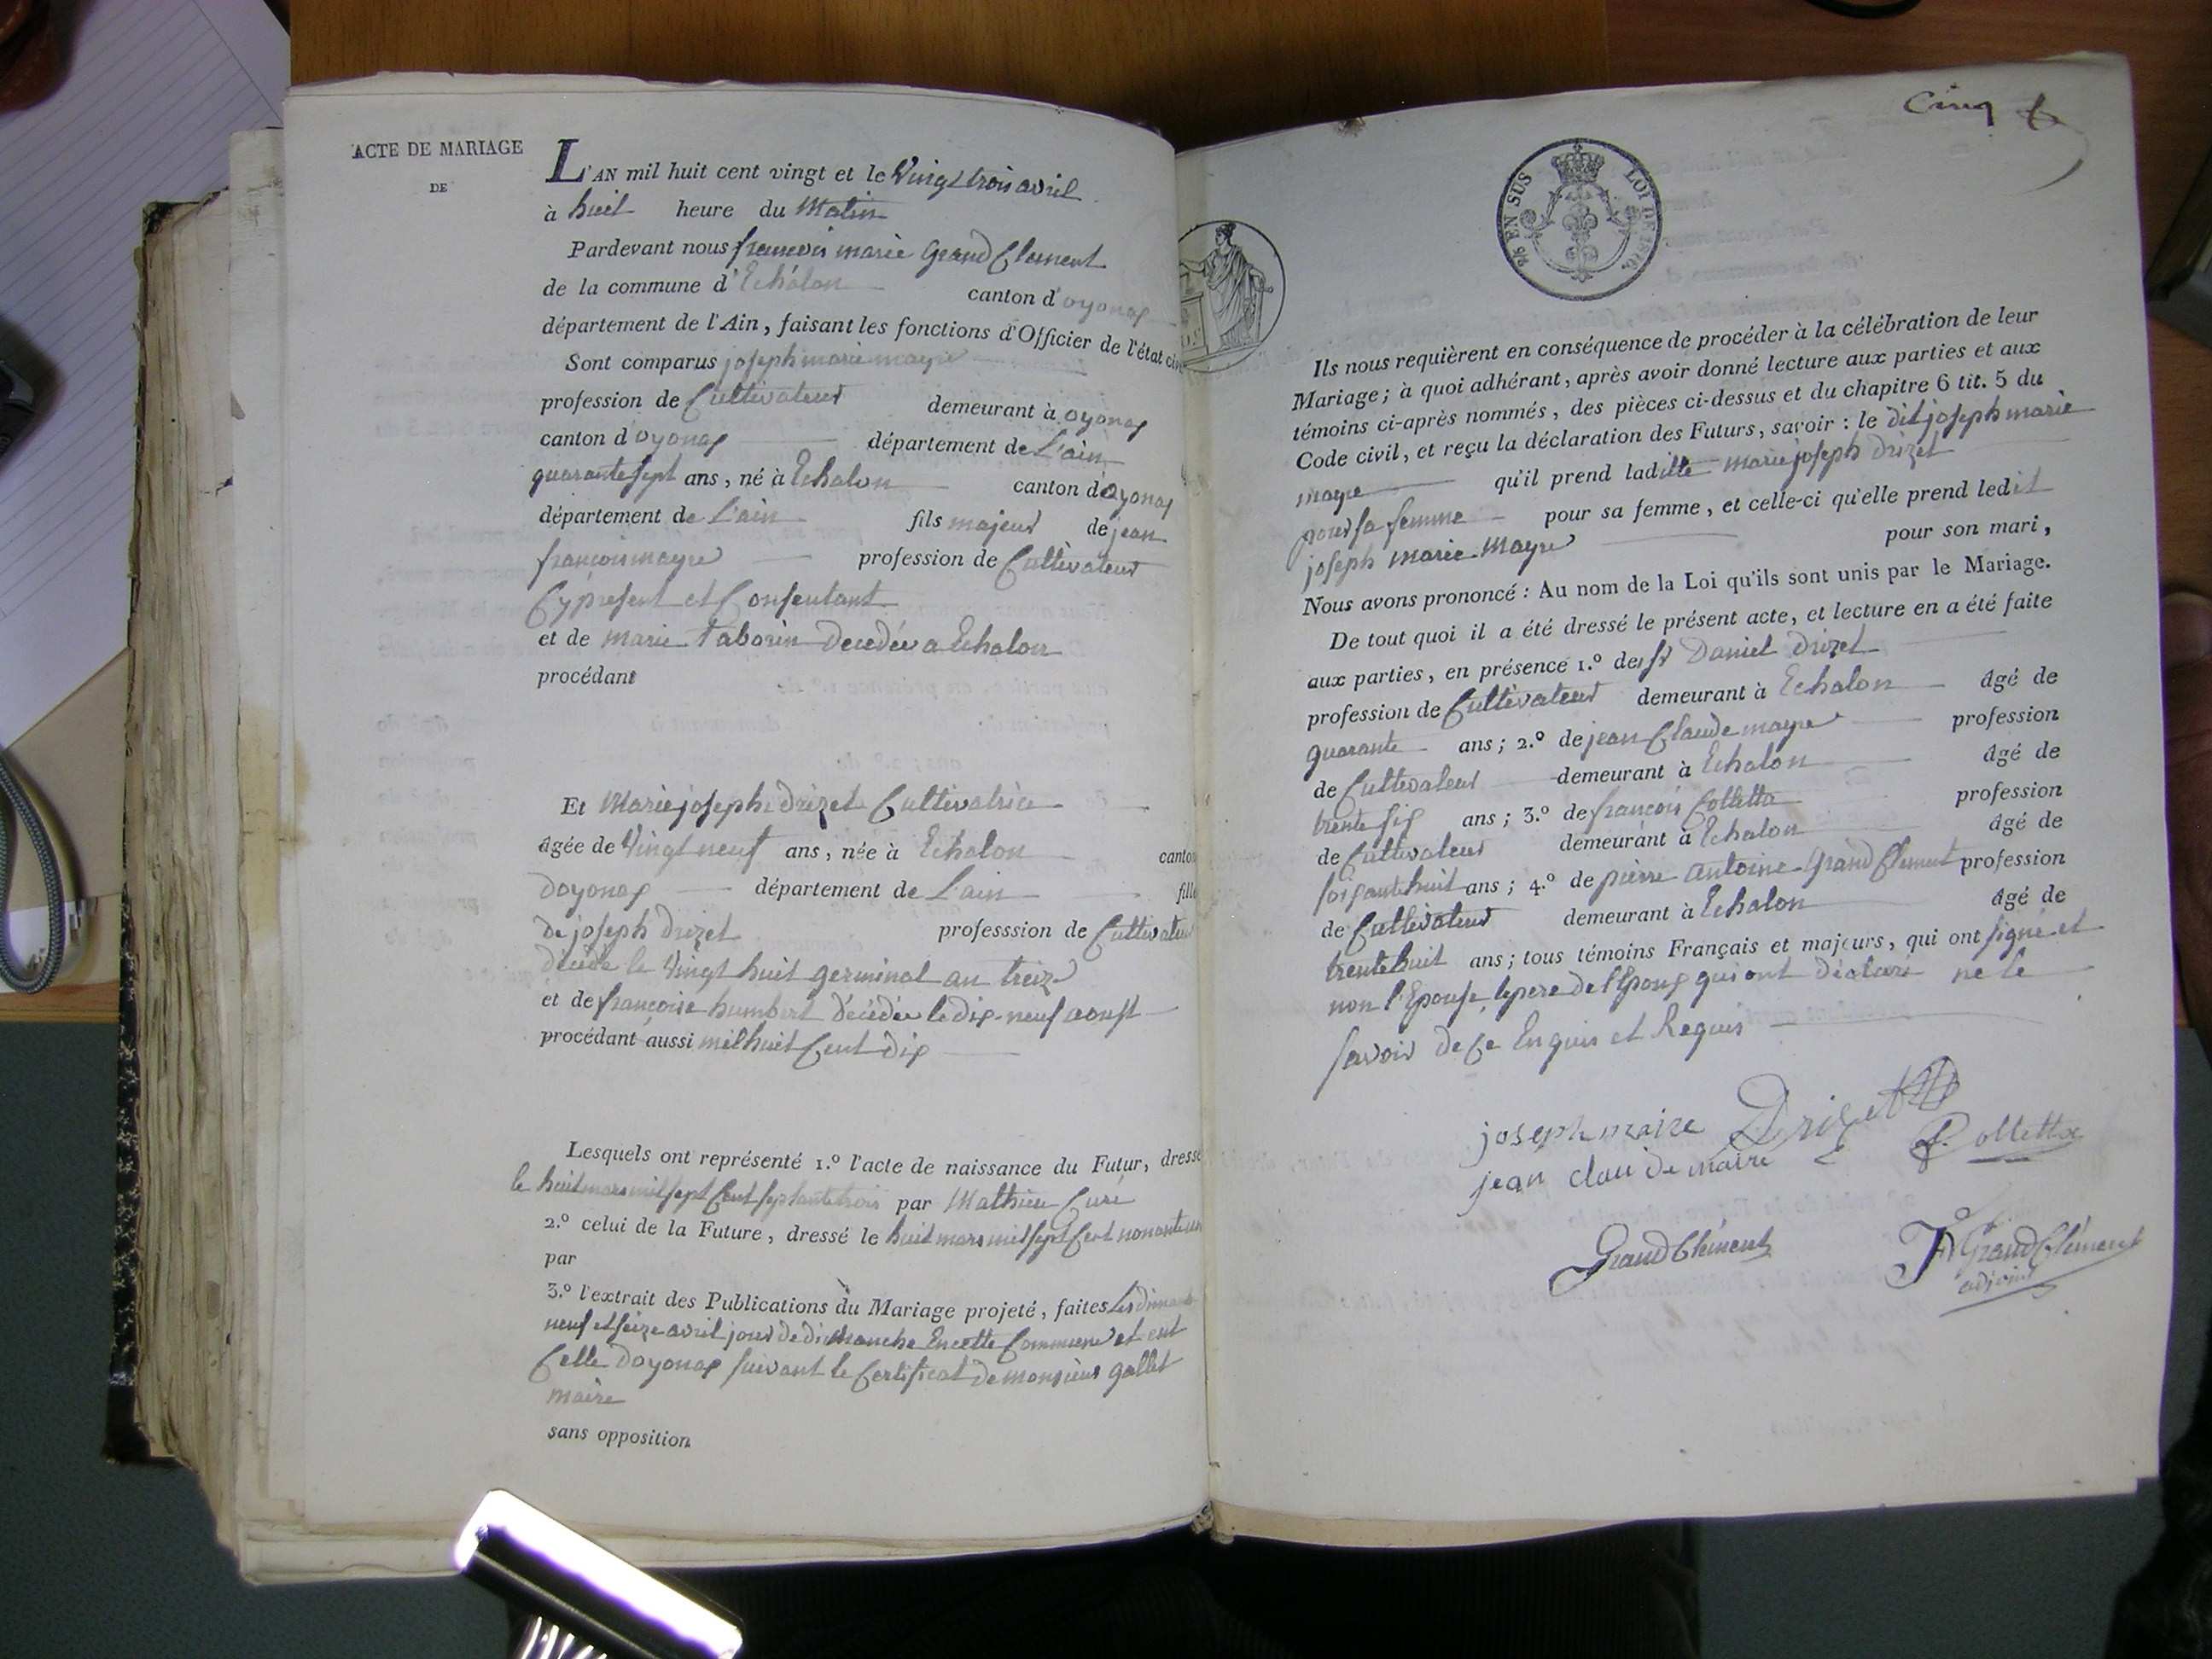 ACTE DE MARIAGE
DE
L'AN mil huit cent vingt et le Vingt trois avril
à huit heure du Matin
Pardevant nous francois marie Grand Clement
de la commune d'Echalon canton d'oyonax
département de l'Ain, faisant les fonctions d'Officier de l'état civ
Sont comparus joseph marie mayre
profession de Cultivateur demeurant à oyonax
canton d'oyonax département de L'ain
quarante sept ans, né à Echalon canton d'oyonax
département de L'ain fils majeur de jean
francois mayre profession de Cultivateur
Cy present et Consentant
et de marie Taborin Decedée a Echalon
procédant
Et Marie joseph Drizet Cultivatrice
âgée de Vingt neuf ans, née à Echalon canton
Doyonax département de L'ain fille
De joseph Drizet professsion de Cultivateur
Décédé le Vingt huit germinal an treize
et de francoise humbert Décédée le Dix-neuf aoust
procédant aussi mil huit Cent Dix
Lesquels ont représenté 1.º l'acte de naissance du Futur, dressé
le huit mars mil sept Cent septante trois par Mathieu Curé
2.º celui de la Future, dressé le huit mars mil sept Cent nonante un
par
3.º l'extrait des Publications du Mariage projeté, faites Les
neuf et seize avril jour de dimanche En cette Commune et
Celle Doyonax suivant le Certificat De monsieur gallet
maire
sans opposition
Cinq
2/6 EN SUS LOI DE 1816.
Ils nous requièrent en conséquence de procéder à la célébration de leur
Mariage; à quoi adhérant, après avoir donné lecture aux parties et aux
témoins ci-après nommés, des pièces ci-dessus et du chapitre 6 tit. 5 du
Code civil, et reçu la déclaration des Futurs, savoir: le dit joseph marie
mayre qu'il prend ladite marie joseph Drizet
pour sa femme pour sa femme, et celle-ci qu'elle prend ledit
joseph marie Mayre pour son mari,
Nous avons prononcé: Au nom de la Loi qu'ils sont unis par le Mariage.
De tout quoi il a été dressé le présent acte, et lecture en a été faite
aux parties, en présence 1.º de Sr Daniel Drizet
profession de Cultivateur demeurant à Echalon âgé de
quarante ans; 2.º de jean Claude mayre profession
de Cultivateur demeurant à Echalon âgé de
trente six ans; 3.º de francois Colletta profession
de Cultivateur demeurant à Echalon âgé de
soixante huit ans; 4.º de pierre antoine Grand Clement profession
de Cultivateur demeurant à Echalon âgé de
trente huit ans; tous témoins Français et majeurs, qui ont signé et
non l'Epouse, le pere de l'Epoux qui ont Déclaré ne le
savoir De Ce Enquis et Requis
joseph maire Drizet
jean claude maire Colletta
Grand Clément GrandClément
adjoint